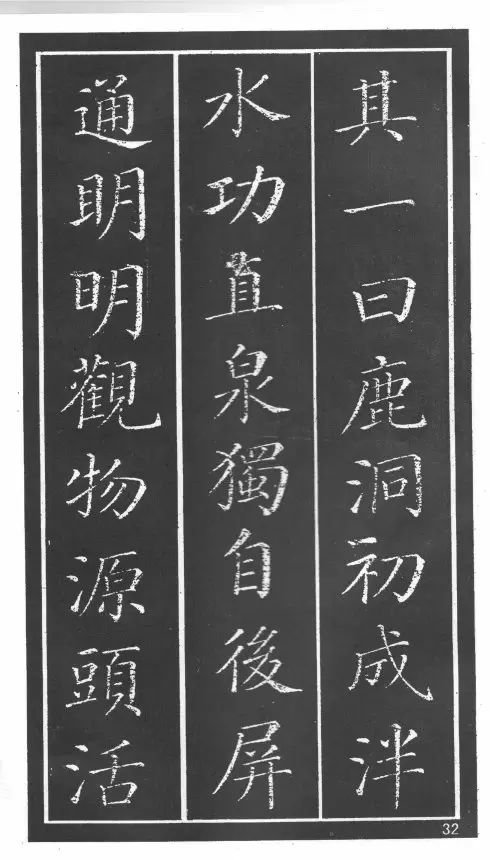 其一曰鹿洞初成泮
水功直泉獨自後屏
通明明觀物源頭活
32